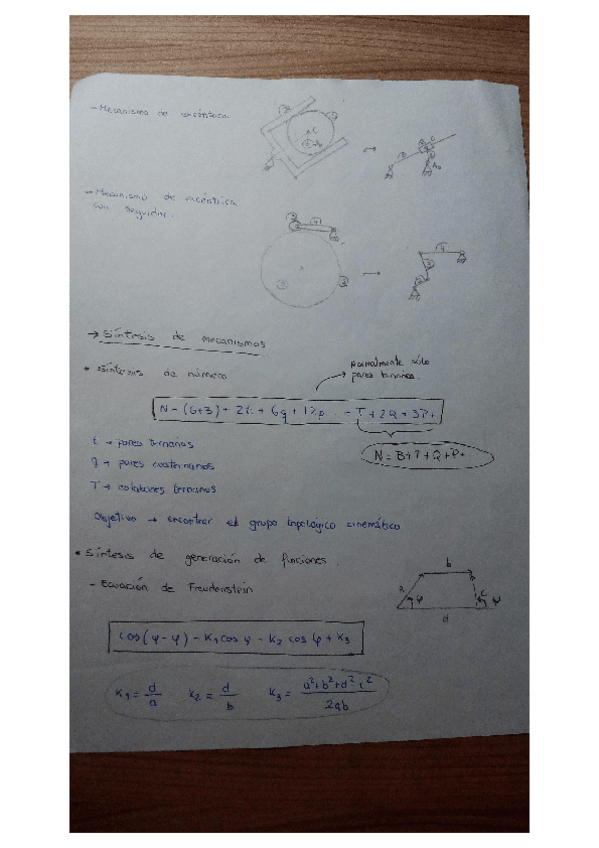 - Mecanismo de excéntrica
- Mecanismo de excéntrica
con seguidor.
→ Síntesis de mecanismos
• Síntesis de número
normalmente sólo
pares binarios.
N - (G+3) + 2t + 6q + 12p... = T + 2Q + 3P+
N = B+T+Q+P+
t → pares ternarios
q → pares cuaternarios
T → eslabones ternarios
Objetivo → encontrar el grupo topológico cinemático
• Síntesis de generación de funciones.
- Ecuación de Freudenstein
b
d
cos(φ-ψ) = K₁cos ψ - K₂ cos φ + K₃
K₁ = d/a K₂ = d/b K₃ = a²+b²+d²-c²/2ab